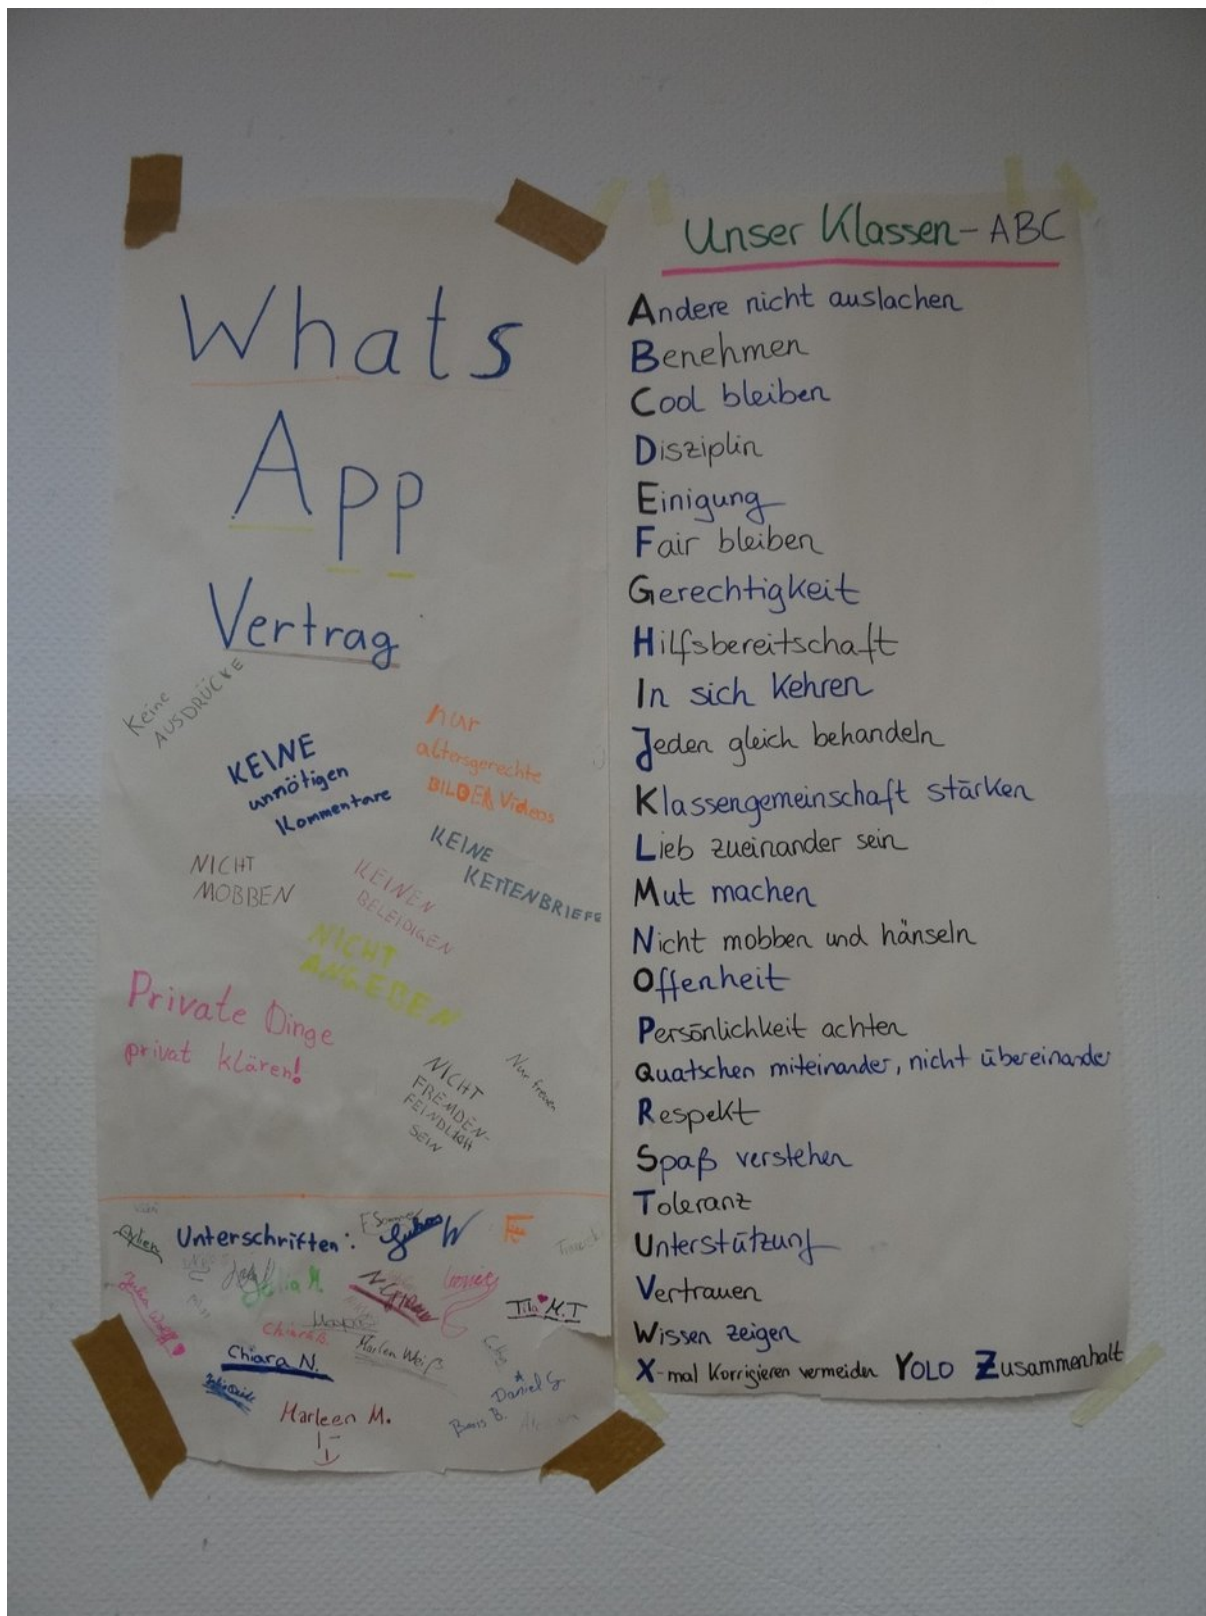 Whats
App
Vertrag
Keine
AUSDRÜCKE
KEINE
unnötigen
Kommentare
nur
altersgerechte
BILDER Videos
KEINE
KETTENBRIEFE
NICHT
MOBBEN
KEINEN
BELEIDIGEN
NICHT
ANGEBEN
Private Dinge
privat klären!
NICHT
FREMDEN-
FEINDLICH
SEIN
Nur
Unterschriften:
W
Julia M
Julia Wolff
Tila M.T
Chiara B.
Marlen Weiß
Chiara N.
Daniel G
Boris B.
Marleen M.
Unser Klassen-ABC
Andere nicht auslachen
Benehmen
Cool bleiben
Disziplin
Einigung
Fair bleiben
Gerechtigkeit
Hilfsbereitschaft
In sich Kehren
Jeden gleich behandeln
Klassengemeinschaft stärken
Lieb zueinander sein
Mut machen
Nicht mobben und hänseln
Offenheit
Persönlichkeit achten
Quatschen miteinander, nicht übereinander
Respekt
Spaß verstehen
Toleranz
Unterstützung
Vertrauen
Wissen zeigen
X-mal Korrigieren vermeiden YOLO Zusammenhalt